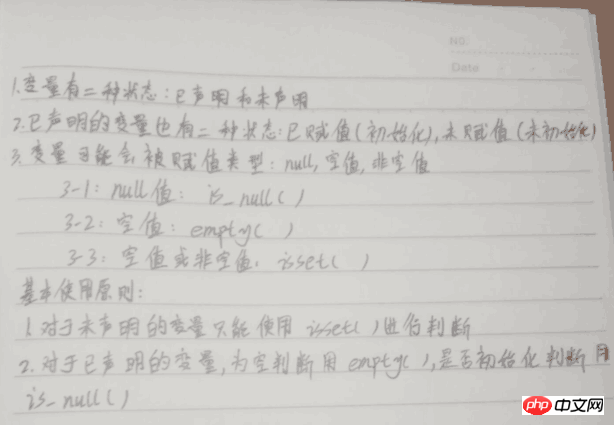 No.
Date
1.变量有二种状态:已声明和未声明
2.已声明的变量也有二种状态:已赋值(初始化),未赋值(未初始化)
3.变量可能会被赋值类型:null,空值,非空值
3-1:null值: is_null( )
3-2:空值: empty( )
3-3:空值或非空值. isset( )
基本使用原则:
1.对于未声明的变量只能使用 isset( )进行判断
2.对于已声明的变量,为空判断用 empty( ),是否初始化判断用
is_null( )
php 中文网